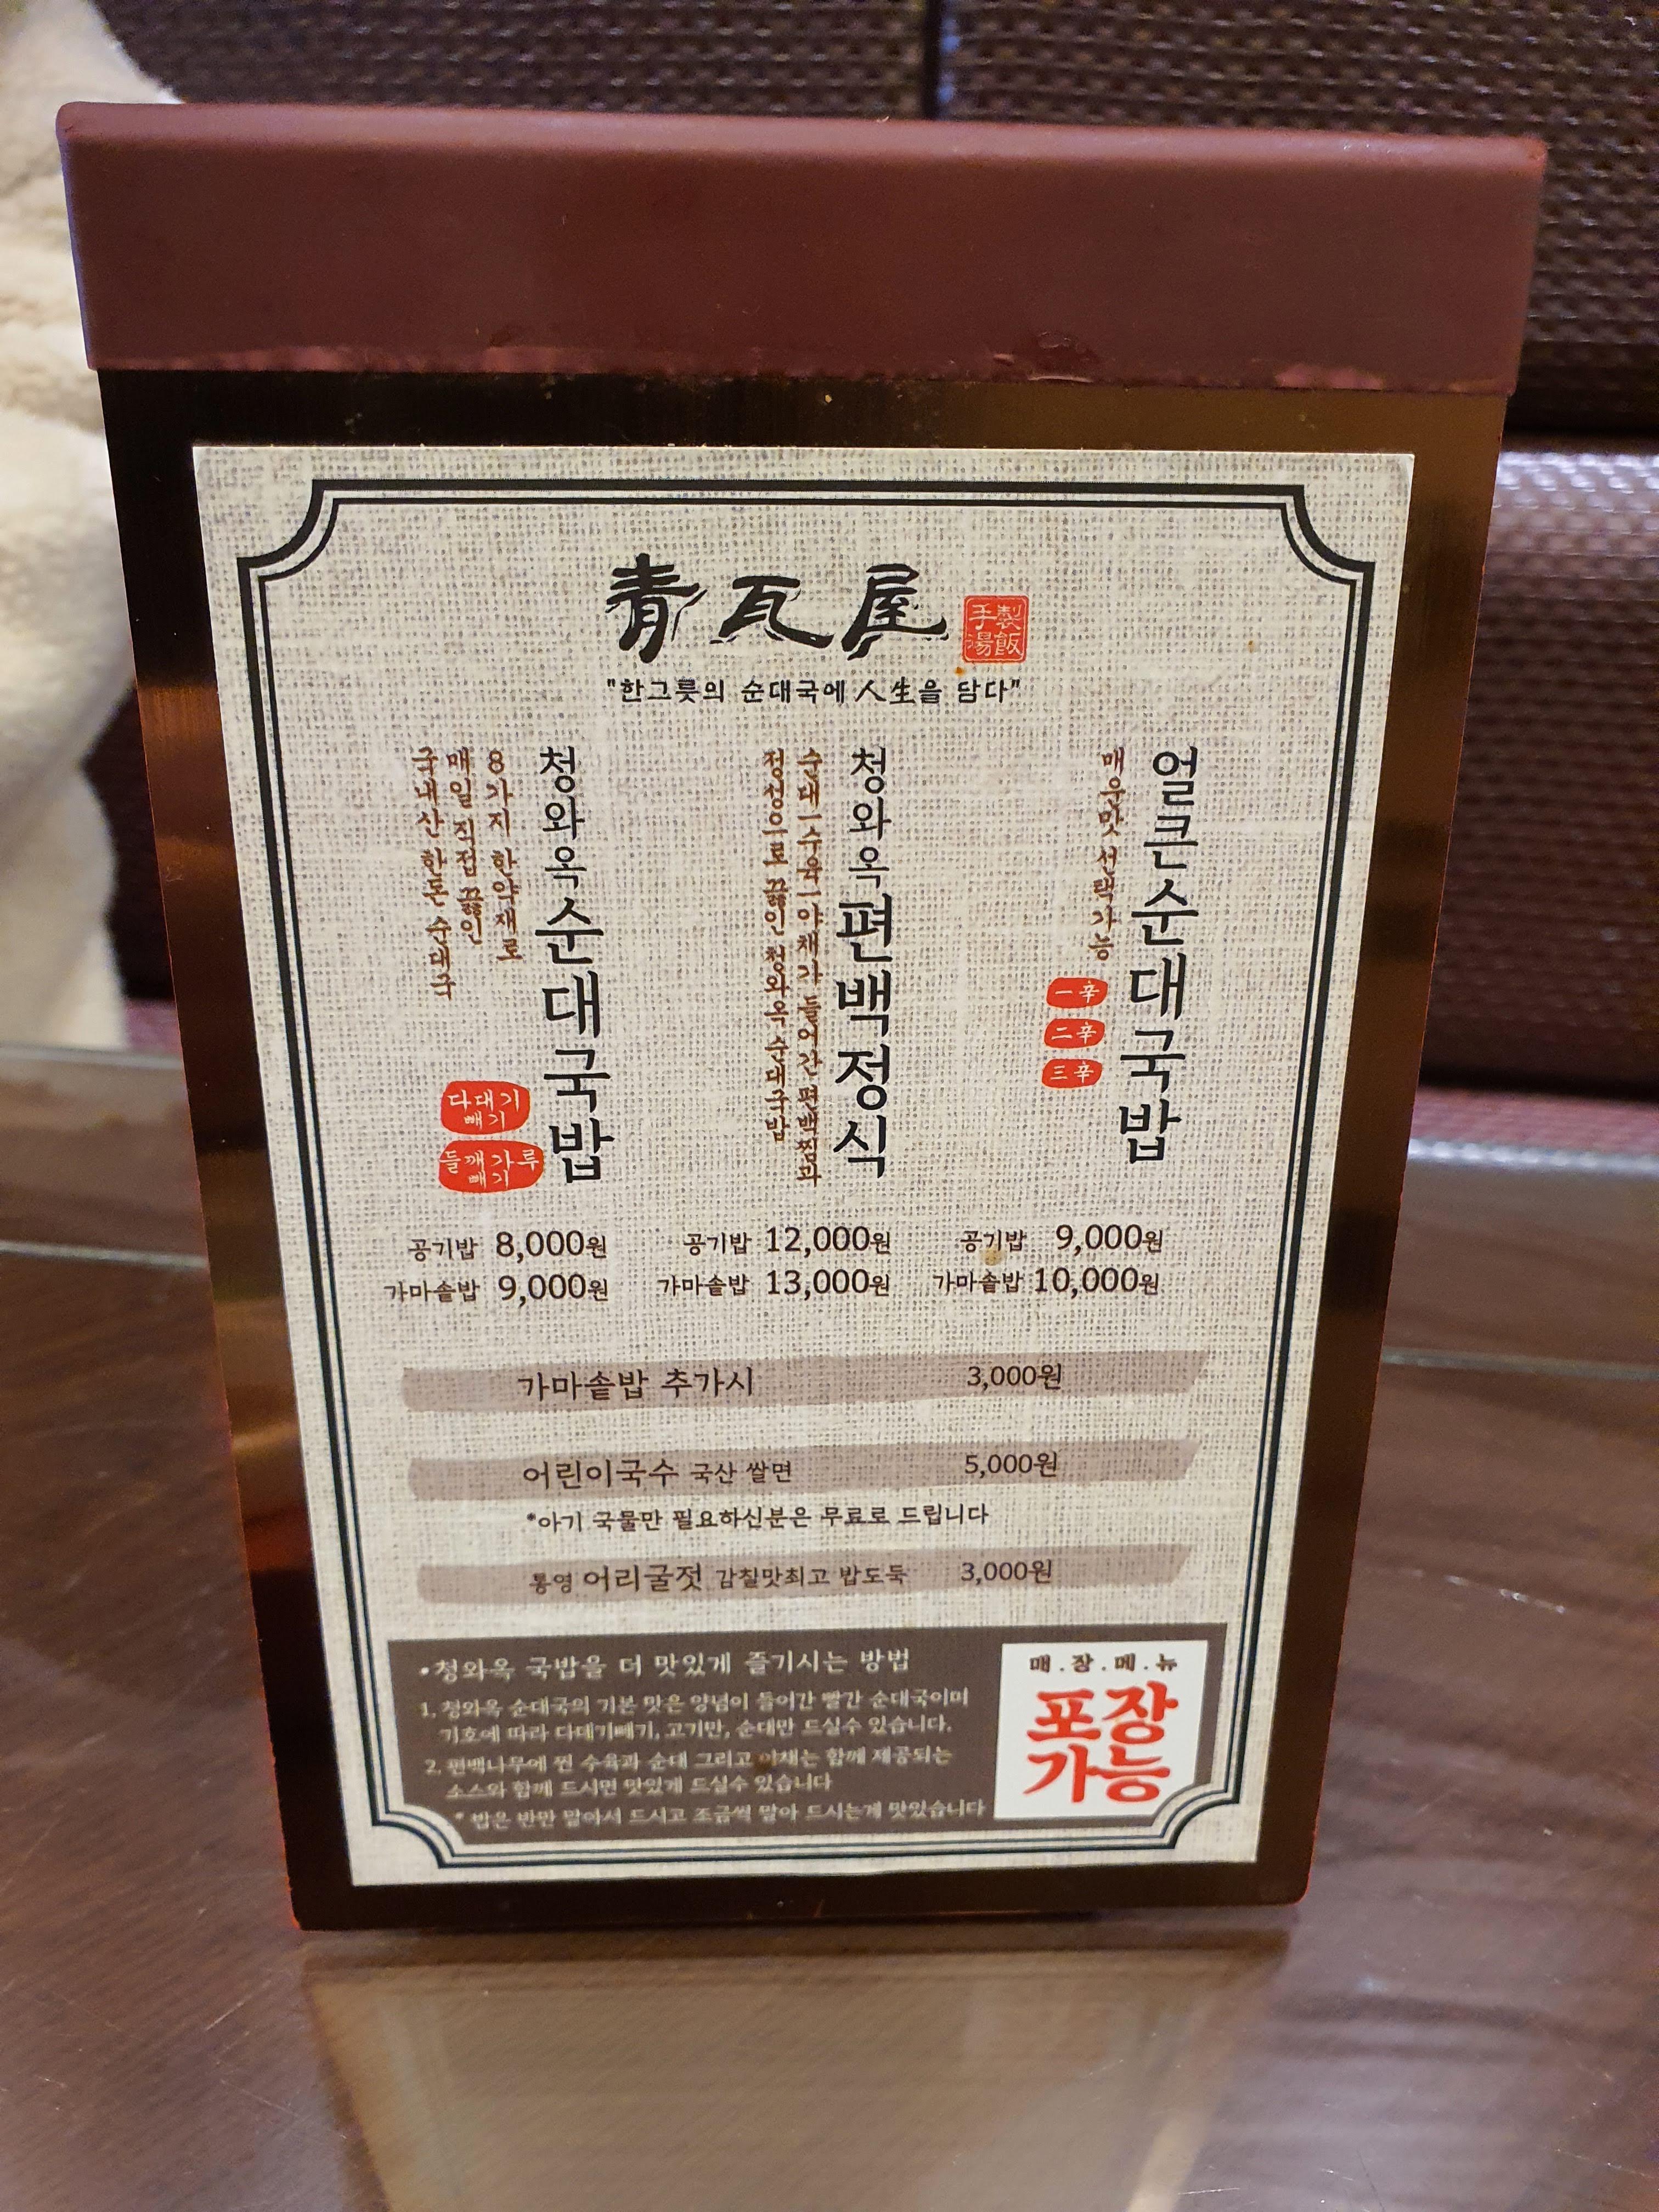 青瓦屋
手製
湯飯
"한그릇의 순대국에 人生을 담다"
청와옥 순대국밥
8가지 한약재로
매일 직접 끓인
국내산 한돈 순대국
다대기
빼기
들깨가루
빼기
공기밥 8,000원
가마솥밥 9,000원
청와옥 편백정식
순대ㅣ수육ㅣ야채가 들어간 편백찜과
정성으로 끓인 청와옥 순대국밥
공기밥 12,000원
가마솥밥 13,000원
얼큰순대국밥
매운맛 선택가능
一辛
二辛
三辛
공기밥 9,000원
가마솥밥 10,000원
가마솥밥 추가시 3,000원
어린이국수 국산 쌀면 5,000원
*아기 국물만 필요하신분은 무료로 드립니다
통영 어리굴젓 감칠맛최고 밥도둑 3,000원
•청와옥 국밥을 더 맛있게 즐기시는 방법
1. 청와옥 순대국의 기본 맛은 양념이 들어간 빨간 순대국이며
기호에 따라 다데기빼기, 고기만, 순대만 드실수 있습니다.
2. 편백나무에 찐 수육과 순대 그리고 야채는 함께 제공되는
소스와 함께 드시면 맛있게 드실수 있습니다
* 밥은 반만 말아서 드시고 조금씩 말아 드시는게 맛있습니다
매.장.메.뉴
포장
가능